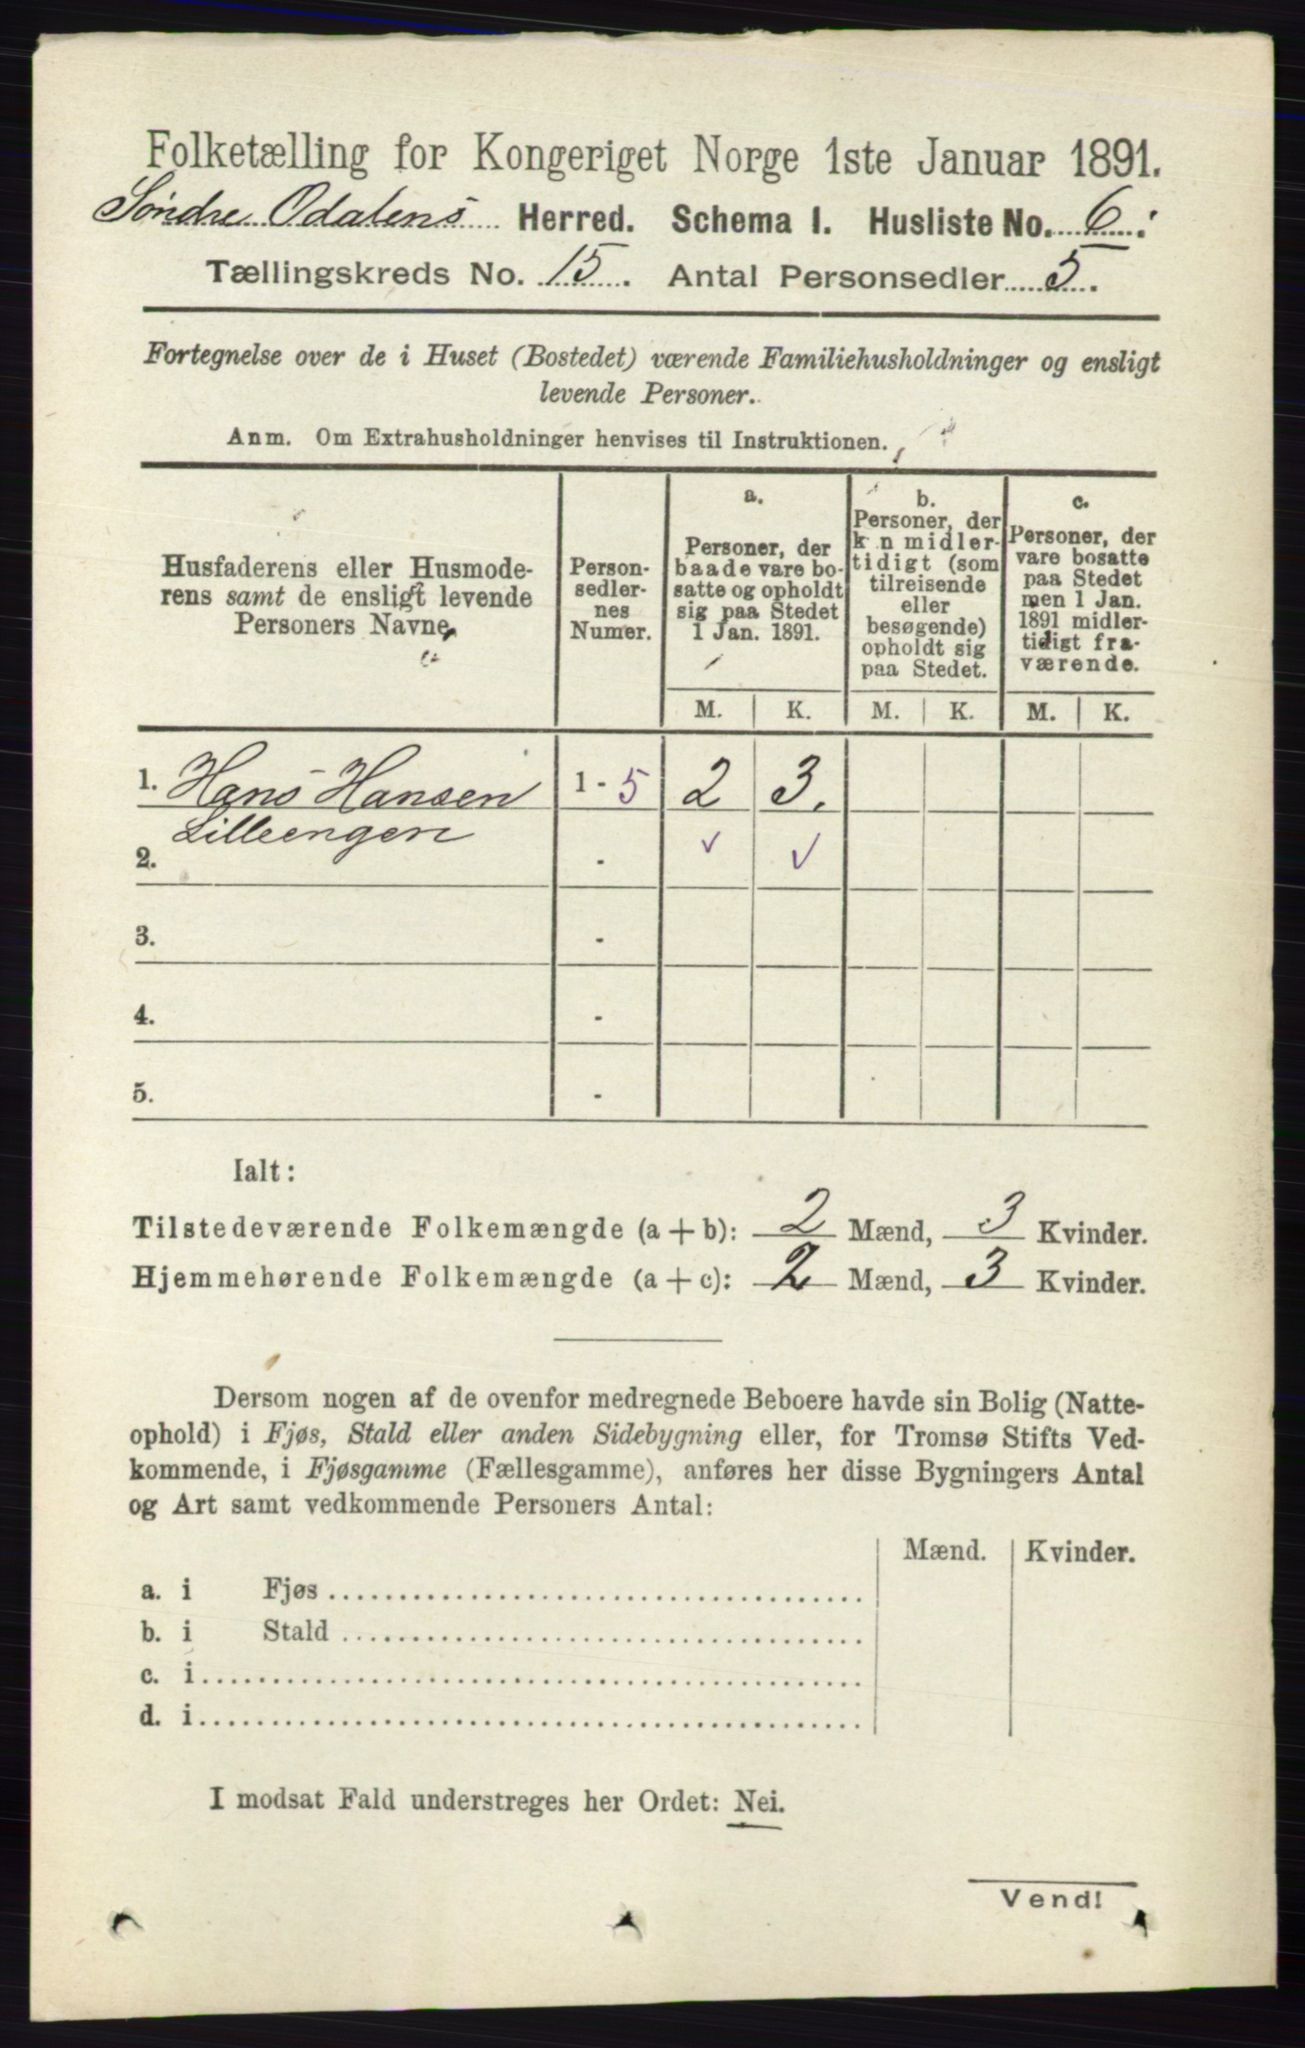 Folketælling for Kongeriget Norge 1ste Januar 1891.
Søndre Odalens Herred. Schema I. Husliste No. 6.
Tællingskreds No. 15. Antal Personsedler 5.
Fortegnelse over de i Huset (Bostedet) værende Familiehusholdninger og ensligt
levende Personer.
Anm. Om Extrahusholdninger henvises til Instruktionen.
Husfaderens eller Husmode-
rens samt de ensligt levende
Personers Navne.
Person-
sedler-
nes
Numer.
a.
Personer, der
baade vare bo-
satte og opholdt
sig paa Stedet
1 Jan. 1891.
b.
Personer, der
k n midler-
tidigt (som
tilreisende
eller
besøgende)
opholdt sig
paa Stedet.
c.
Personer, der
vare bosatte
paa Stedet
men 1 Jan.
1891 midler-
tidigt fra-
værende.
M. K. M. K. M. K.
1. Hans Hansen 1 - 5 2 3.
Lilleengen
2. - ✓ ✓
3. -
4. -
5. -
Ialt:
Tilstedeværende Folkemængde (a + b): 2 Mænd, 3 Kvinder.
Hjemmehørende Folkemængde (a + c): 2 Mænd, 3 Kvinder.
Dersom nogen af de ovenfor medregnede Beboere havde sin Bolig (Natte-
ophold) i Fjøs, Stald eller anden Sidebygning eller, for Tromsø Stifts Ved-
kommende, i Fjøsgamme (Fællesgamme), anføres her disse Bygningers Antal
og Art samt vedkommende Personers Antal:
Mænd. Kvinder.
a. i Fjøs
b. i Stald
c. i
d. i
I modsat Fald understreges her Ordet: Nei.
Vend!